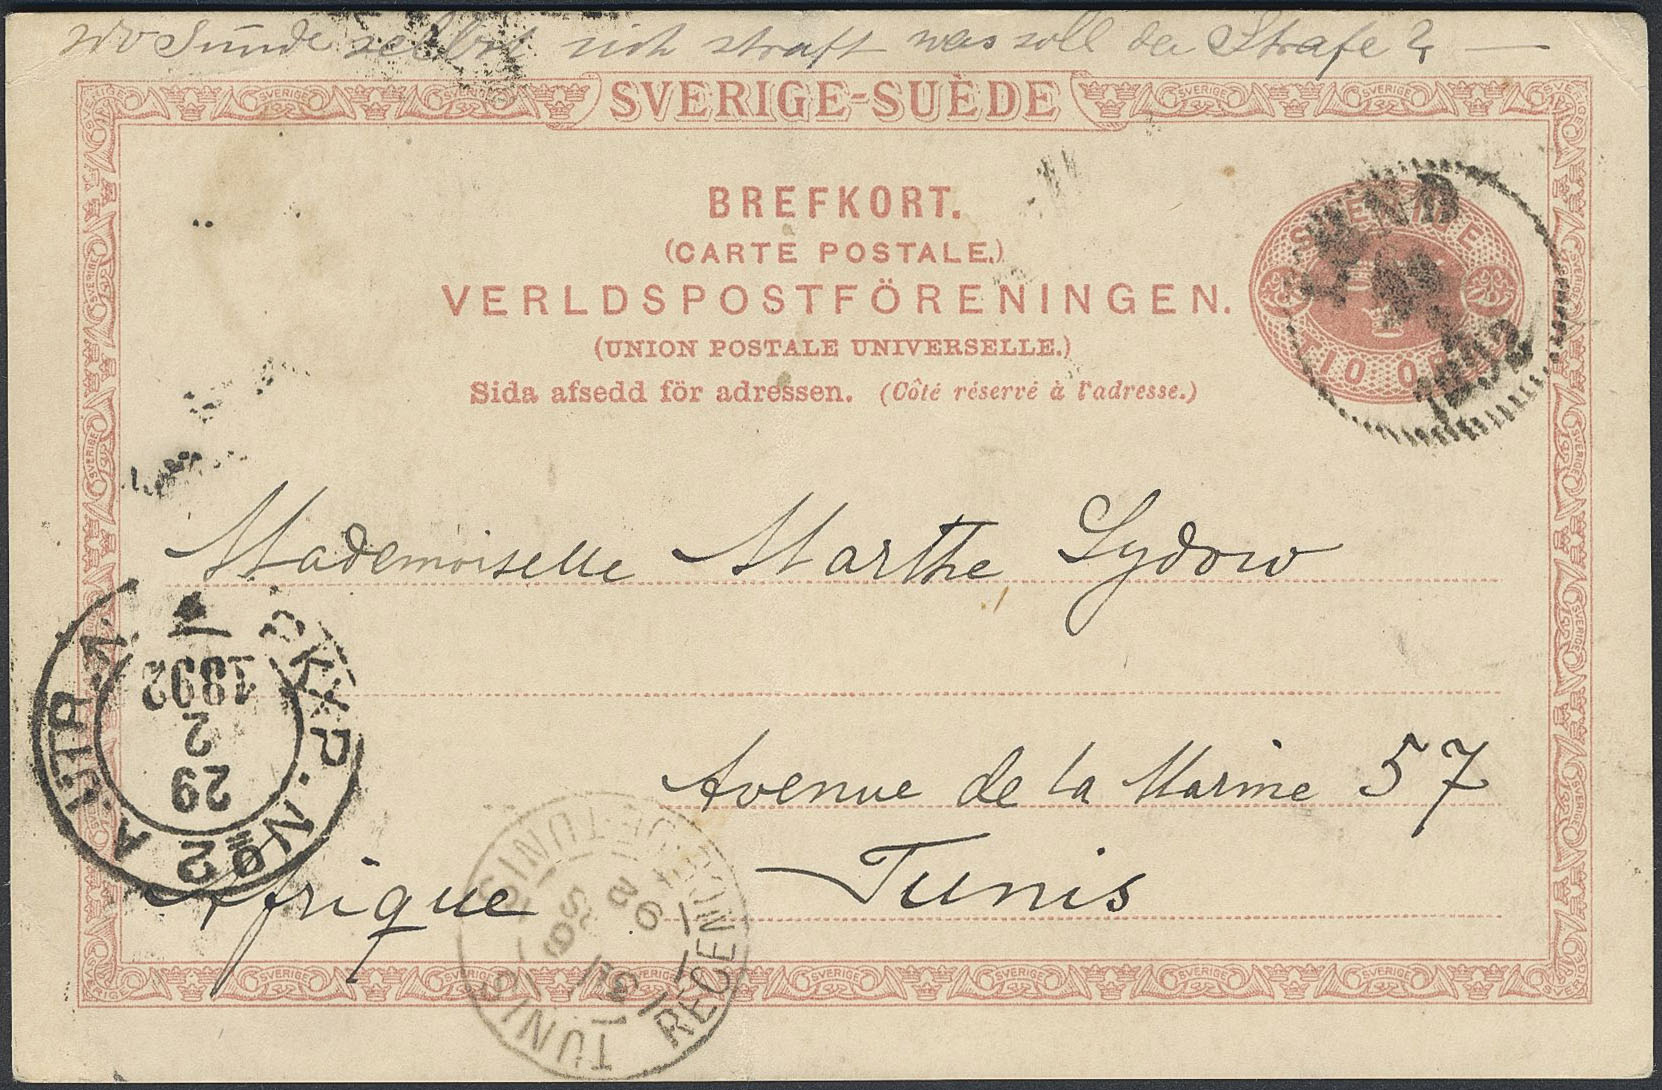 wo Sünde selbst sich straft was soll der Strafe?
SVERIGE-SUÈDE
BREFKORT.
(CARTE POSTALE.)
VERLDSPOSTFÖRENINGEN.
(UNION POSTALE UNIVERSELLE.)
Sida afsedd för adressen. (Côté réservé à l'adresse.)
TIO ÖRE
LUND
1892
Mademoiselle Marthe Sydow
Avenue de la Marine 57
Tunis
Afrique
PKXP. No 2 A UTR.
29
2
1892
TUNIS